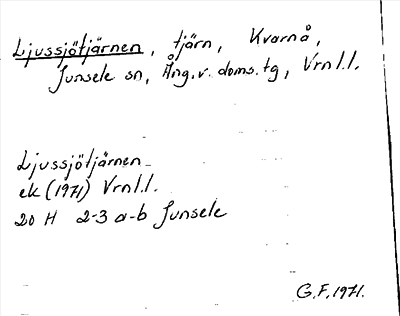 Ljussjötjärnen, tjärn, Kvarnå,
Junsele sn, Ång.v. doms.tg, Vrnl.l.
Ljussjötjärnen
ek (1971) Vrnl.l.
20 H 2-3 a-b Junsele
G.F. 1971.